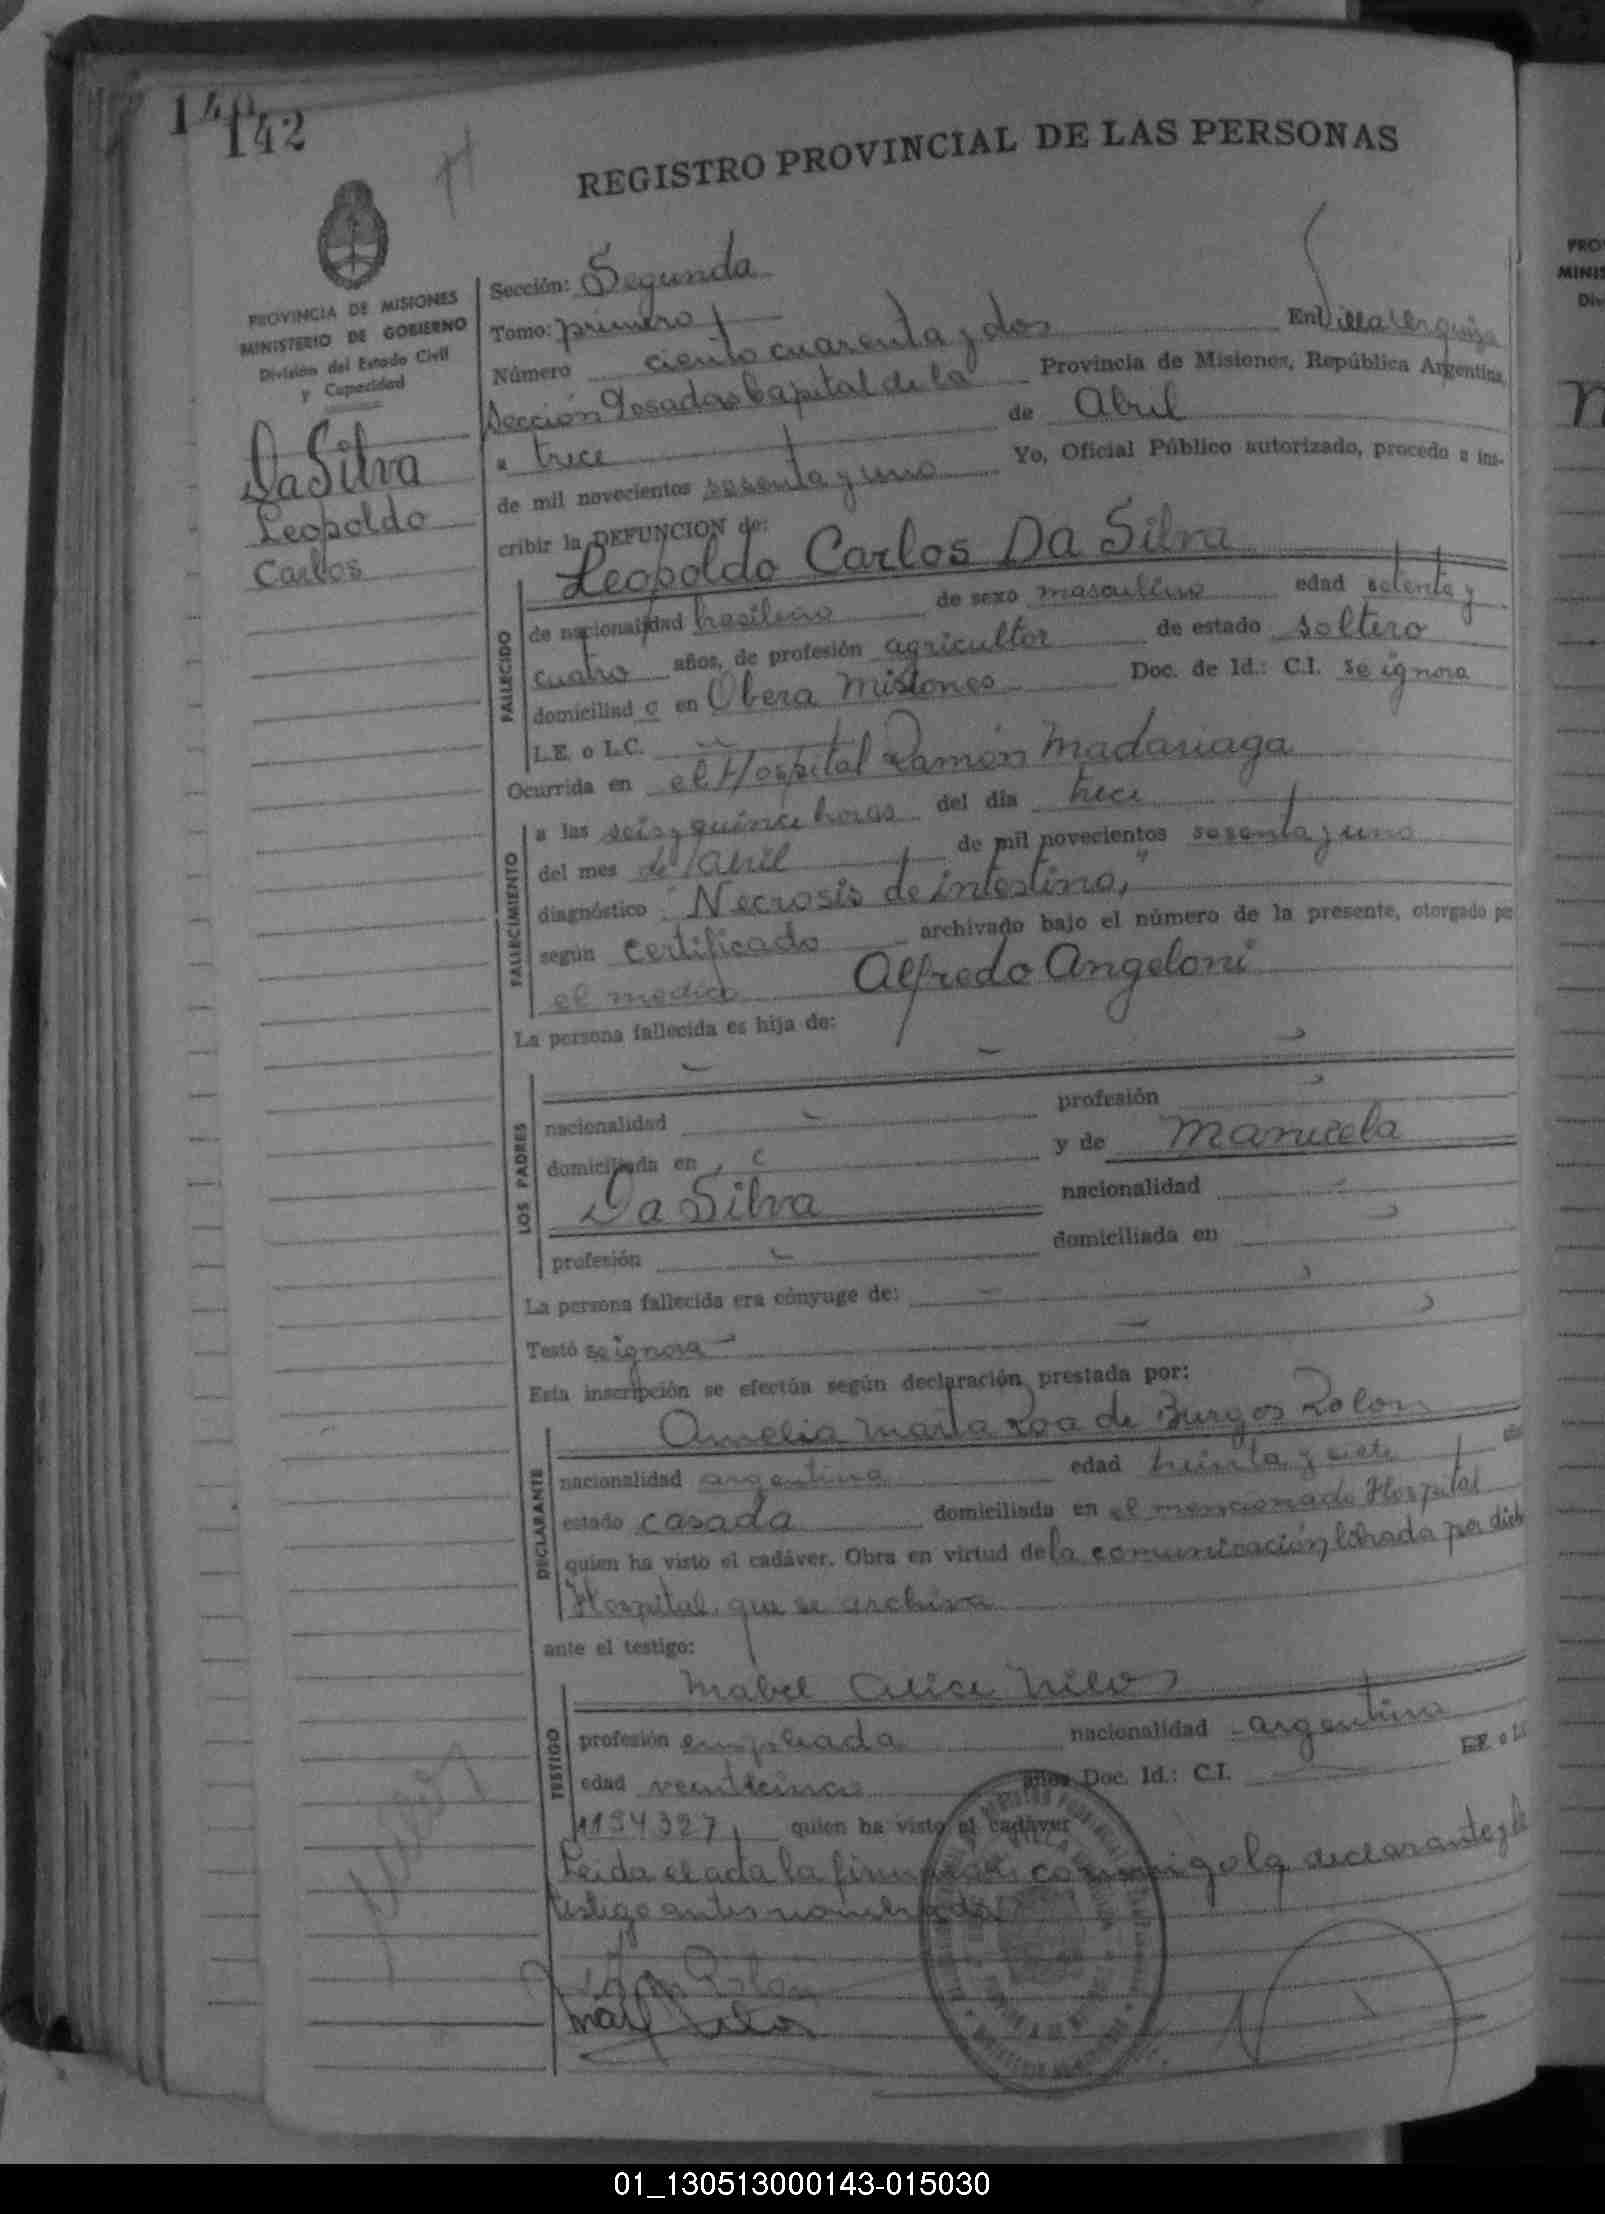 140
142
REGISTRO PROVINCIAL DE LAS PERSONAS
PROVINCIA DE MISIONES
MINISTERIO DE GOBIERNO
División del Estado Civil
y Capacidad
Da Silva
Leopoldo
Carlos
Sección: Segunda
Tomo: primero
Número ciento cuarenta y dos En Villa Urquiza
Sección Posadas Capital de la Provincia de Misiones, República Argentina,
a trece de Abril
de mil novecientos sesenta y uno Yo, Oficial Público autorizado, procedo a ins-
cribir la DEFUNCION de:
Leopoldo Carlos Da Silva
FALLECIDO
de nacionalidad brasileño de sexo masculino edad setenta y
cuatro años, de profesión agricultor de estado soltero
domiciliad o en Obera Misiones Doc. de Id.: C.I. se ignora
L.E. o L.C.
Ocurrida en el Hospital Ramón Madariaga
FALLECIMIENTO
a las seis y quince horas del día trece
del mes de abril de mil novecientos sesenta y uno
diagnóstico: "Necrosis de intestino"
según certificado archivado bajo el número de la presente, otorgado po
el medico Alfredo Angeloni
La persona fallecida es hija de:
LOS PADRES
nacionalidad profesión
domiciliada en y de Manuela
Da Silva nacionalidad
profesión domiciliada en
La persona fallecida era cónyuge de:
Testó se ignora
Esta inscripción se efectúa según declaración prestada por:
Amelia Marta Roa de Burgos Rolon
DECLARANTE
nacionalidad argentina edad treinta y siete
estado casada domiciliada en el mencionado Hospital
quien ha visto el cadáver. Obra en virtud de la comunicación librada por dicho
Hospital, que se archiva
ante el testigo:
Mabel Alice
TESTIGO
profesión empleada nacionalidad argentina
edad veinticinco años Doc. Id.: C.I. L.E. o L.C
1194327 quien ha visto el cadáver
Leida el acta la firman conmigo la declarante y la
testigo antes nombrada
PRO
MINIS
Div
01_130513000143-015030